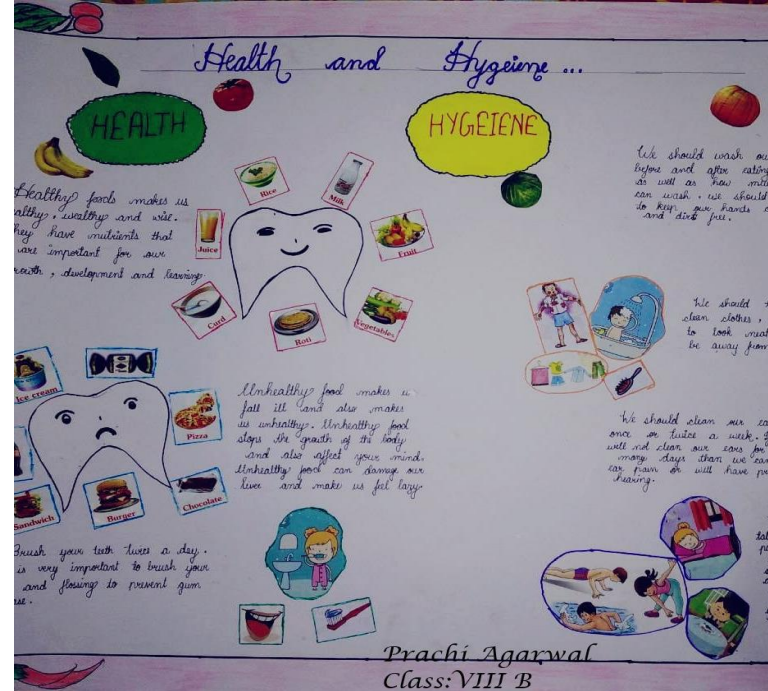 Health and Hygeiene...
HEALTH
HYGEIENE
Healthy foods makes us
althy, wealthy and wise.
hey have nutrients that
are important for our
rowth, development and learning.
Rice
Milk
Juice
Fruit
Curd
Roti
Vegetables
We should wash ou
before and after eating
as well as how ma
can wash. we should
to keep our hands
and dirt free.
We should
clean clothes,
to look neat
be away from
Ice cream
Pizza
Sandwich
Burger
Chocolate
Unhealthy food makes u
fall ill and also makes
us unhealthy. Unhealthy food
stops the growth of the body
and also affect your mind.
Unhealthy food can damage our
liver and make us feel lazy.
We should clean our ea
once or twice a week.
will not clean our ears for
many days than we can
ear pain or will have pr
hearing.
Brush your teeth twice a day.
is very important to brush your
and flosing to prevent gum
se.
Prachi Agarwal
Class:VIII B